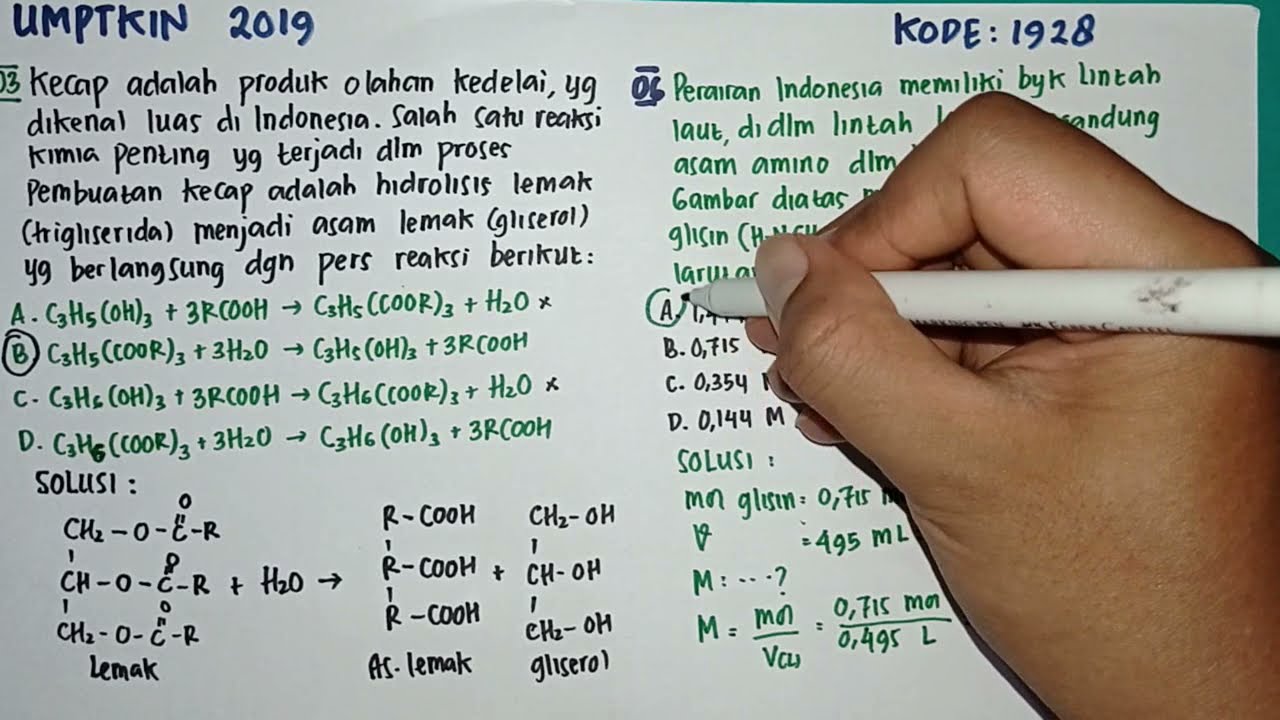 UMPTKIN 2019
KODE: 1928
03 Kecap adalah produk olahan kedelai, yg
dikenal luas di Indonesia. Salah satu reaksi
kimia penting yg terjadi dlm proses
Pembuatan kecap adalah hidrolisis lemak
(trigliserida) menjadi asam lemak (gliserol)
yg berlangsung dgn pers reaksi berikut:
A. C₃H₅(OH)₃ + 3RCOOH → C₃H₅(COOR)₃ + H₂O ×
B C₃H₅(COOR)₃ + 3H₂O → C₃H₅(OH)₃ + 3RCOOH
C. C₃H₆(OH)₃ + 3RCOOH → C₃H₆(COOR)₃ + H₂O ×
D. C₃H₆(COOR)₃ + 3H₂O → C₃H₆(OH)₃ + 3RCOOH
SOLUSI :
O
CH₂ - O - C - R
O
CH - O - C - R + H₂O →
O
CH₂ - O - C - R
Lemak
R - COOH
R - COOH +
R - COOH
As. lemak
CH₂ - OH
CH - OH
CH₂ - OH
gliserol
06 Perairan Indonesia memiliki byk lintah
laut, didlm lintah
asam amino dlm
Gambar diatas
glisin
A
B. 0,715
C. 0,354
D. 0,144 M
SOLUSI :
mol glisin = 0,715
V = 495 mL
M : ....?
M = mol / V(L) = 0,715 mol / 0,495 L